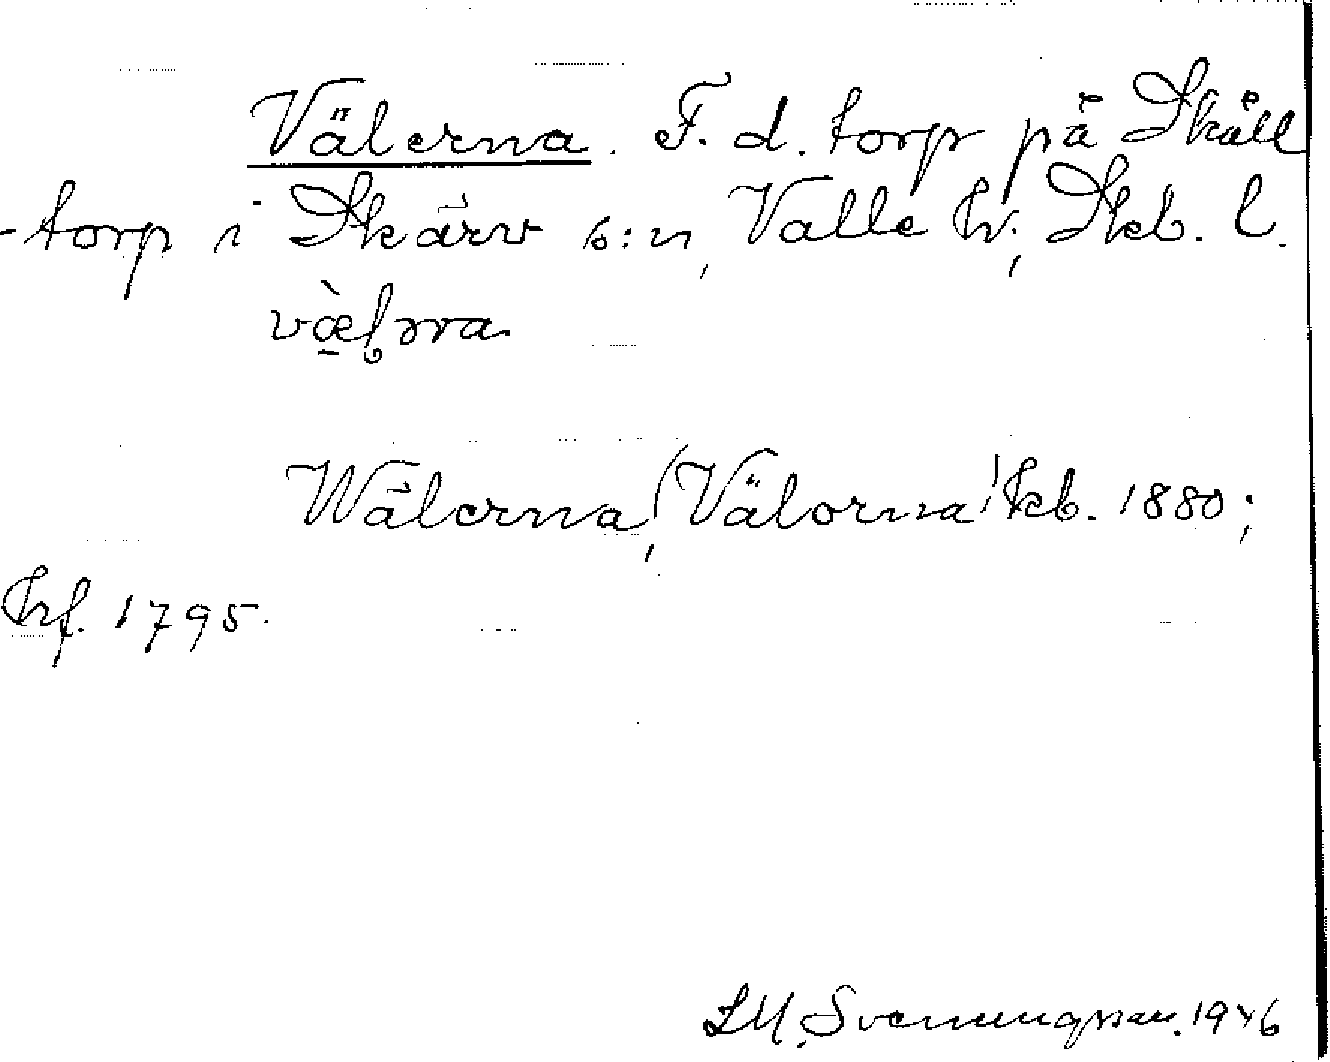 Välerna. F. d. torp på Skåll
-torp i Skärv s:n, Valle hd, Skb. l.
Wälerna, (Välorna) kb. 1880;
hf. 1795.
LM. Svenungsson. 1946